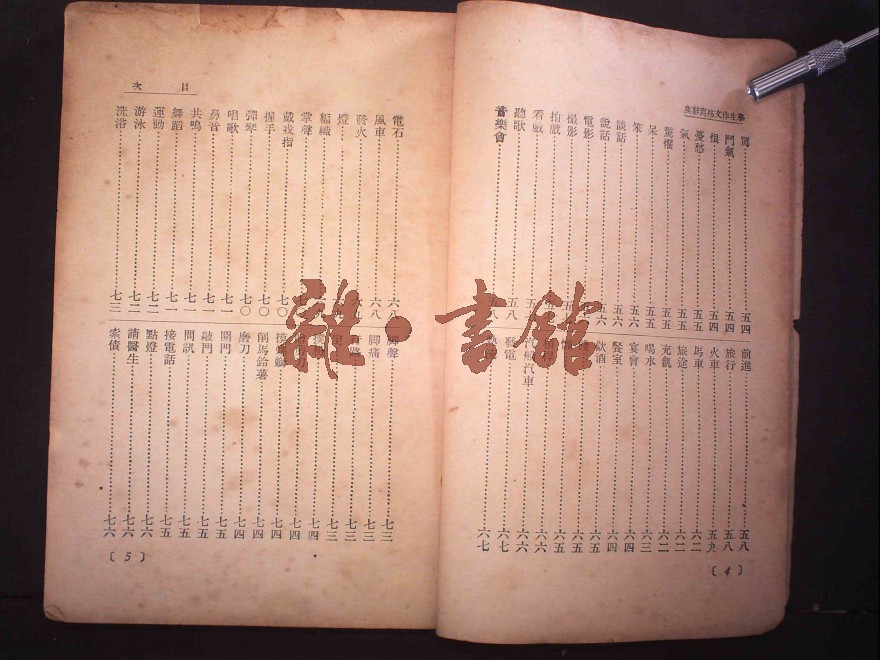 學生作文描寫辭典
罵 五四
鬥氣 五四
恨 五四
憂愁 五五
氣 五五
驚懼 五五
呆 五五
笨 五六
談話 五六
說話 五六
電影
攝影
拍戲
看戲
聽歌 五八
音樂會 五八
前進 五八
旅行 五八
火車 五九
馬車 六二
旅途 六二
充飢 六二
喝水 六三
宴會 六四
餐室 六四
飲酒 六五
六五
六五
六六
汽車 六六
發電 六七
六七
〔4〕
目次
電石 六八
風車 六八
發火
燈
編織
掌聲
戴戒指 七〇
握手 七〇
彈琴 七〇
唱歌 七一
鼻音 七一
共鳴 七一
舞蹈 七一
運動 七二
游泳 七二
洗浴 七三
脚聲 七三
脚痛 七三
七三
七三
七四
七四
七四
削馬鈴薯 七四
磨刀 七四
開門 七五
敲門 七五
問訊 七五
接電話 七五
點燈 七六
請醫生 七六
索債 七六
〔5〕
雜·書館